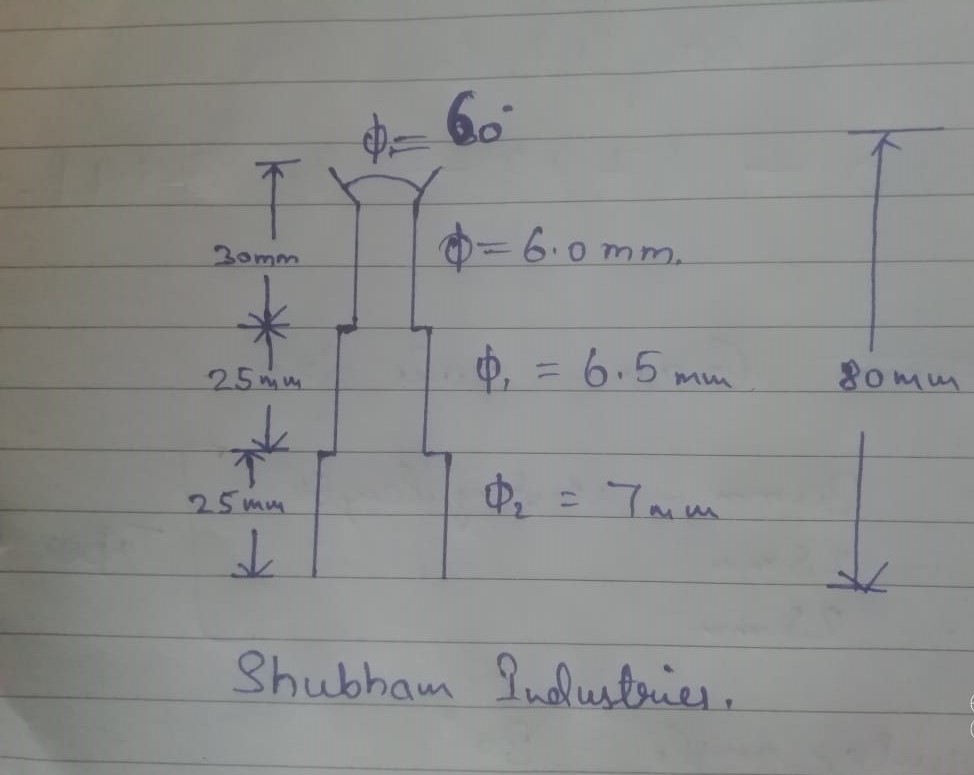 ϕ₁= 60°
30mm
ϕ = 6.0 mm.
25mm
ϕ₁ = 6.5 mm
80mm
25mm
ϕ₂ = 7mm
Shubham Industries.